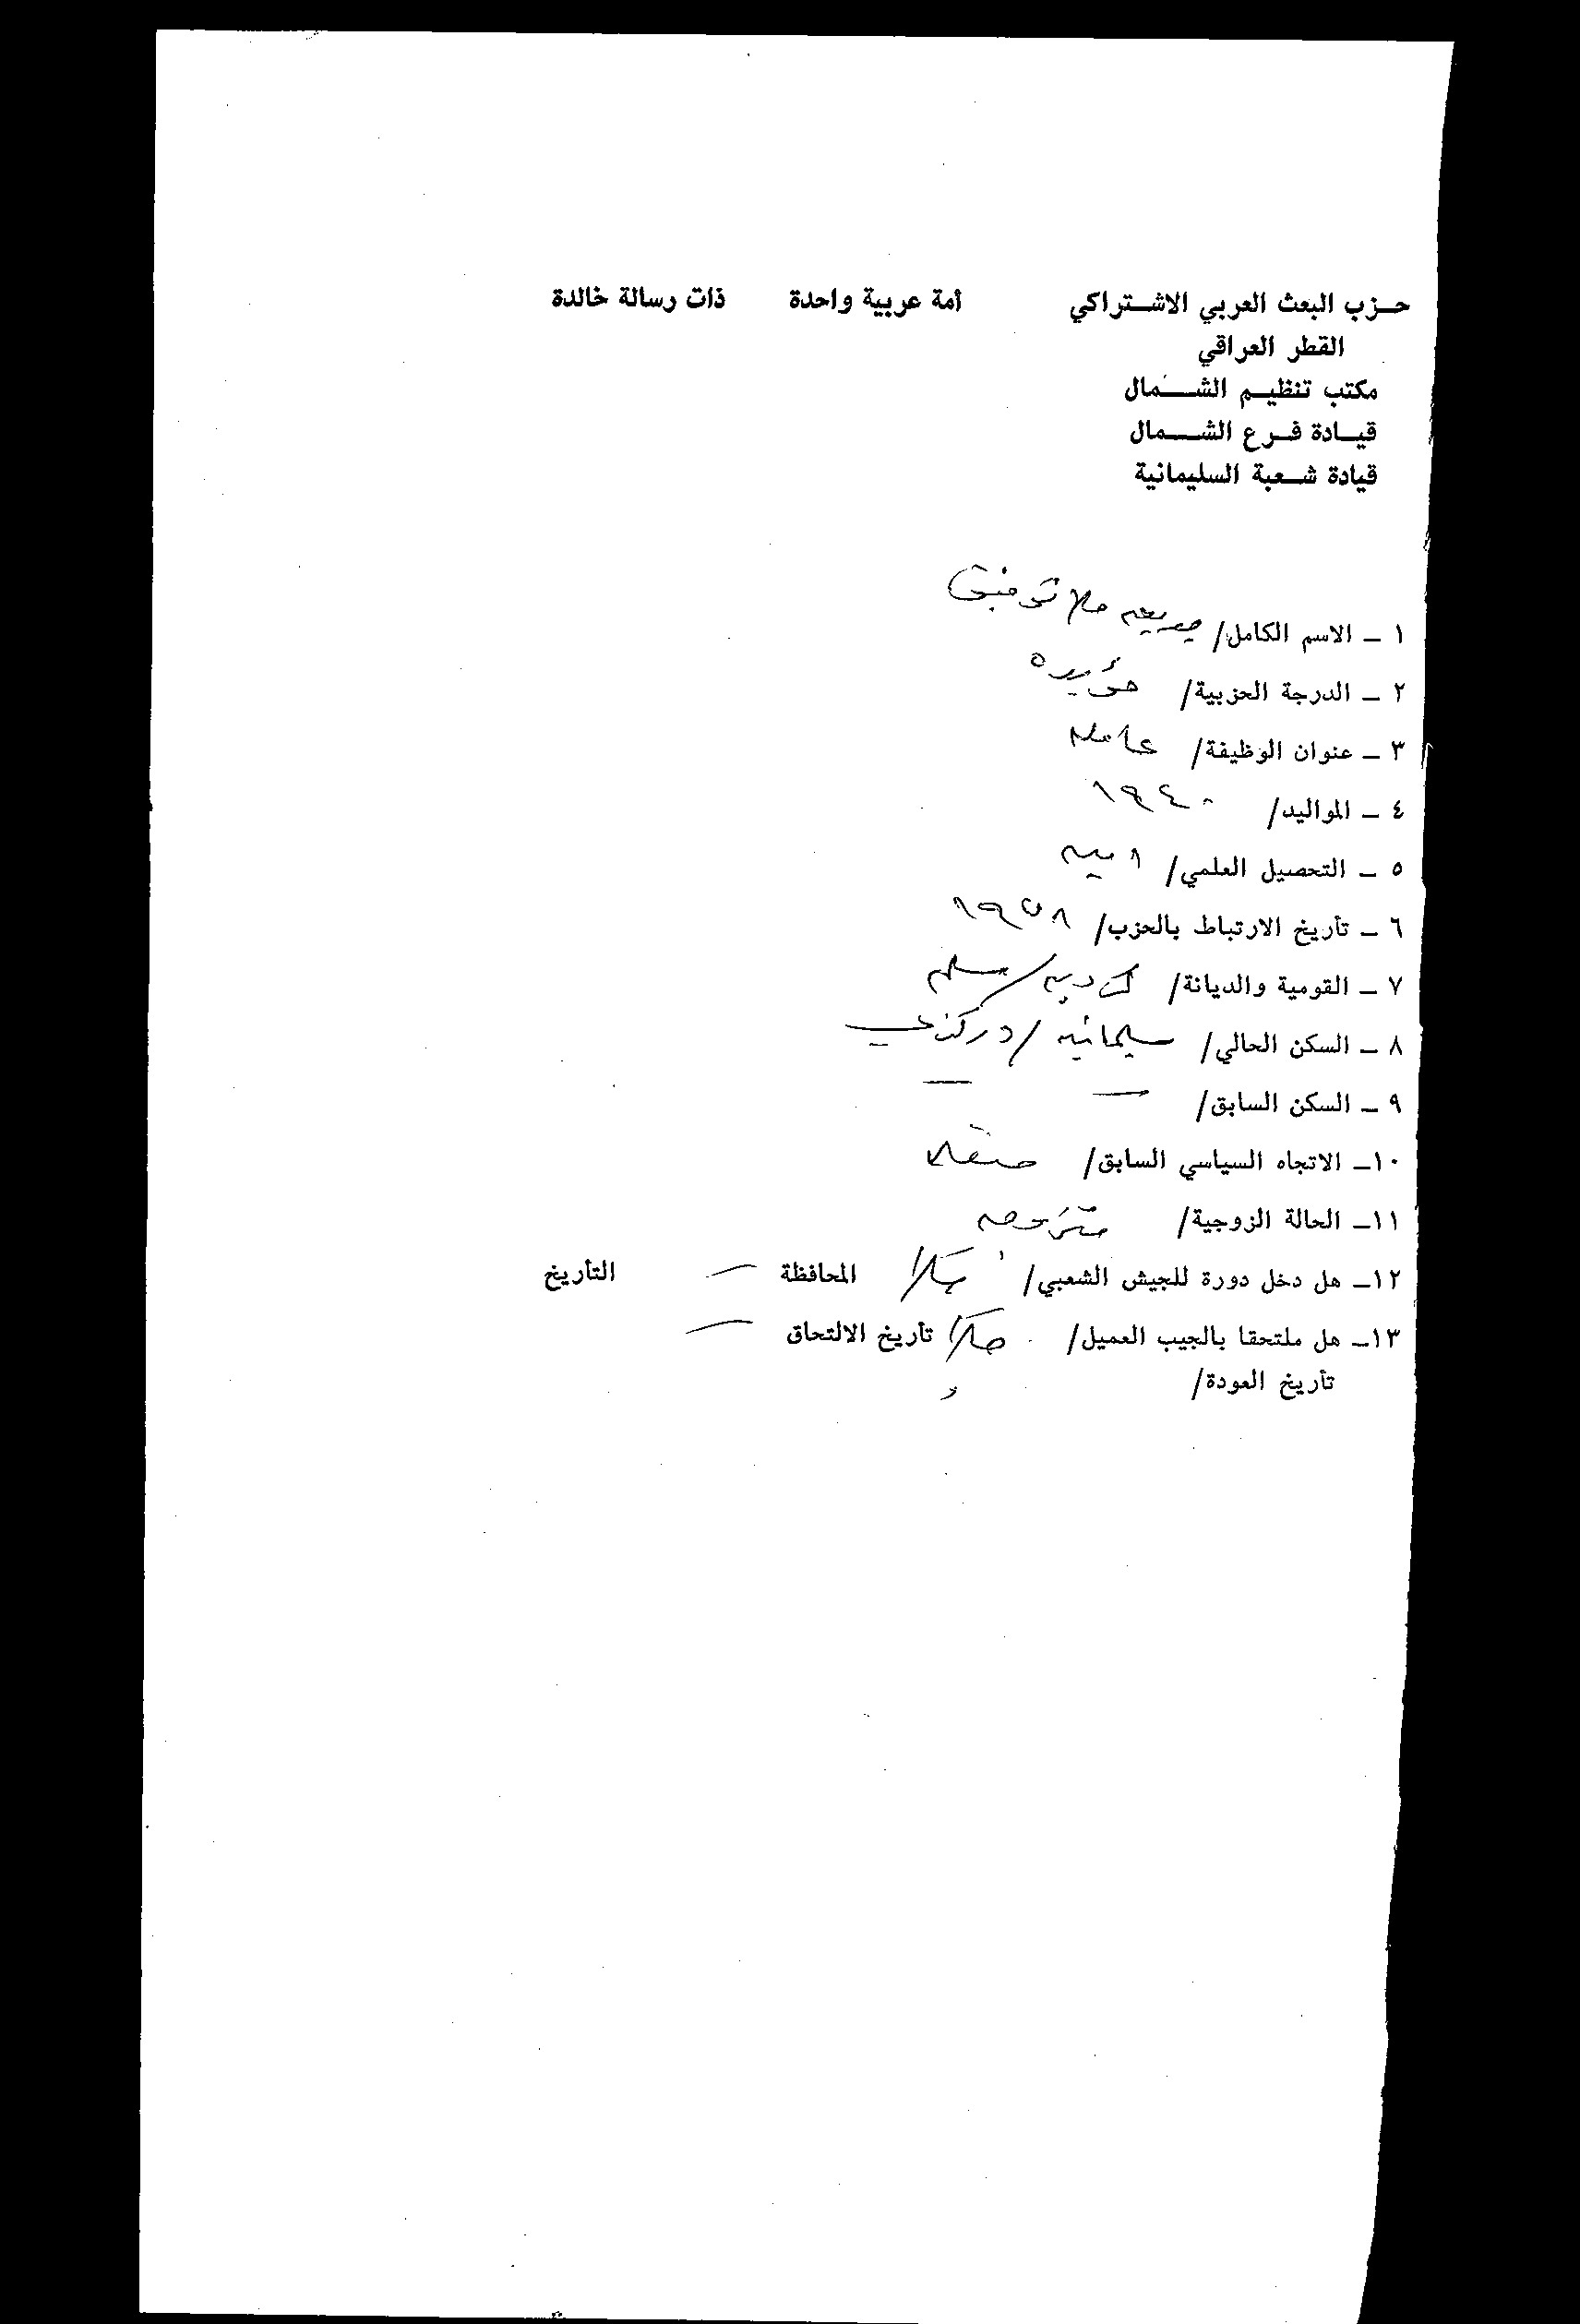 حزب البعث العربي الاشتراكي أمة عربية واحدة ذات رسالة خالدة
القطر العراقي
مكتب تنظيم الشمال
قيادة فرع الشمال
قيادة شعبة السليمانية
١ - الاسم الكامل/ ملا توفيق
٢ - الدرجة الحزبية/ مؤيده
٣ - عنوان الوظيفة/ عامله
٤ - المواليد/ ١٩٤٠
٥ - التحصيل العلمي/ اميه
٦ - تأريخ الارتباط بالحزب/
٧ - القومية والديانة/ كرديه/مسلم
٨ - السكن الحالي/ سليمانيه/
٩ - السكن السابق/ — —
١٠- الاتجاه السياسي السابق/ مستقلا
١١- الحالة الزوجية/ متزوجه
١٢- هل دخل دورة للجيش الشعبي/ المحافظة — التأريخ
١٣- هل ملتحقا بالجيب العميل/ تأريخ الالتحاق —
تأريخ العودة/